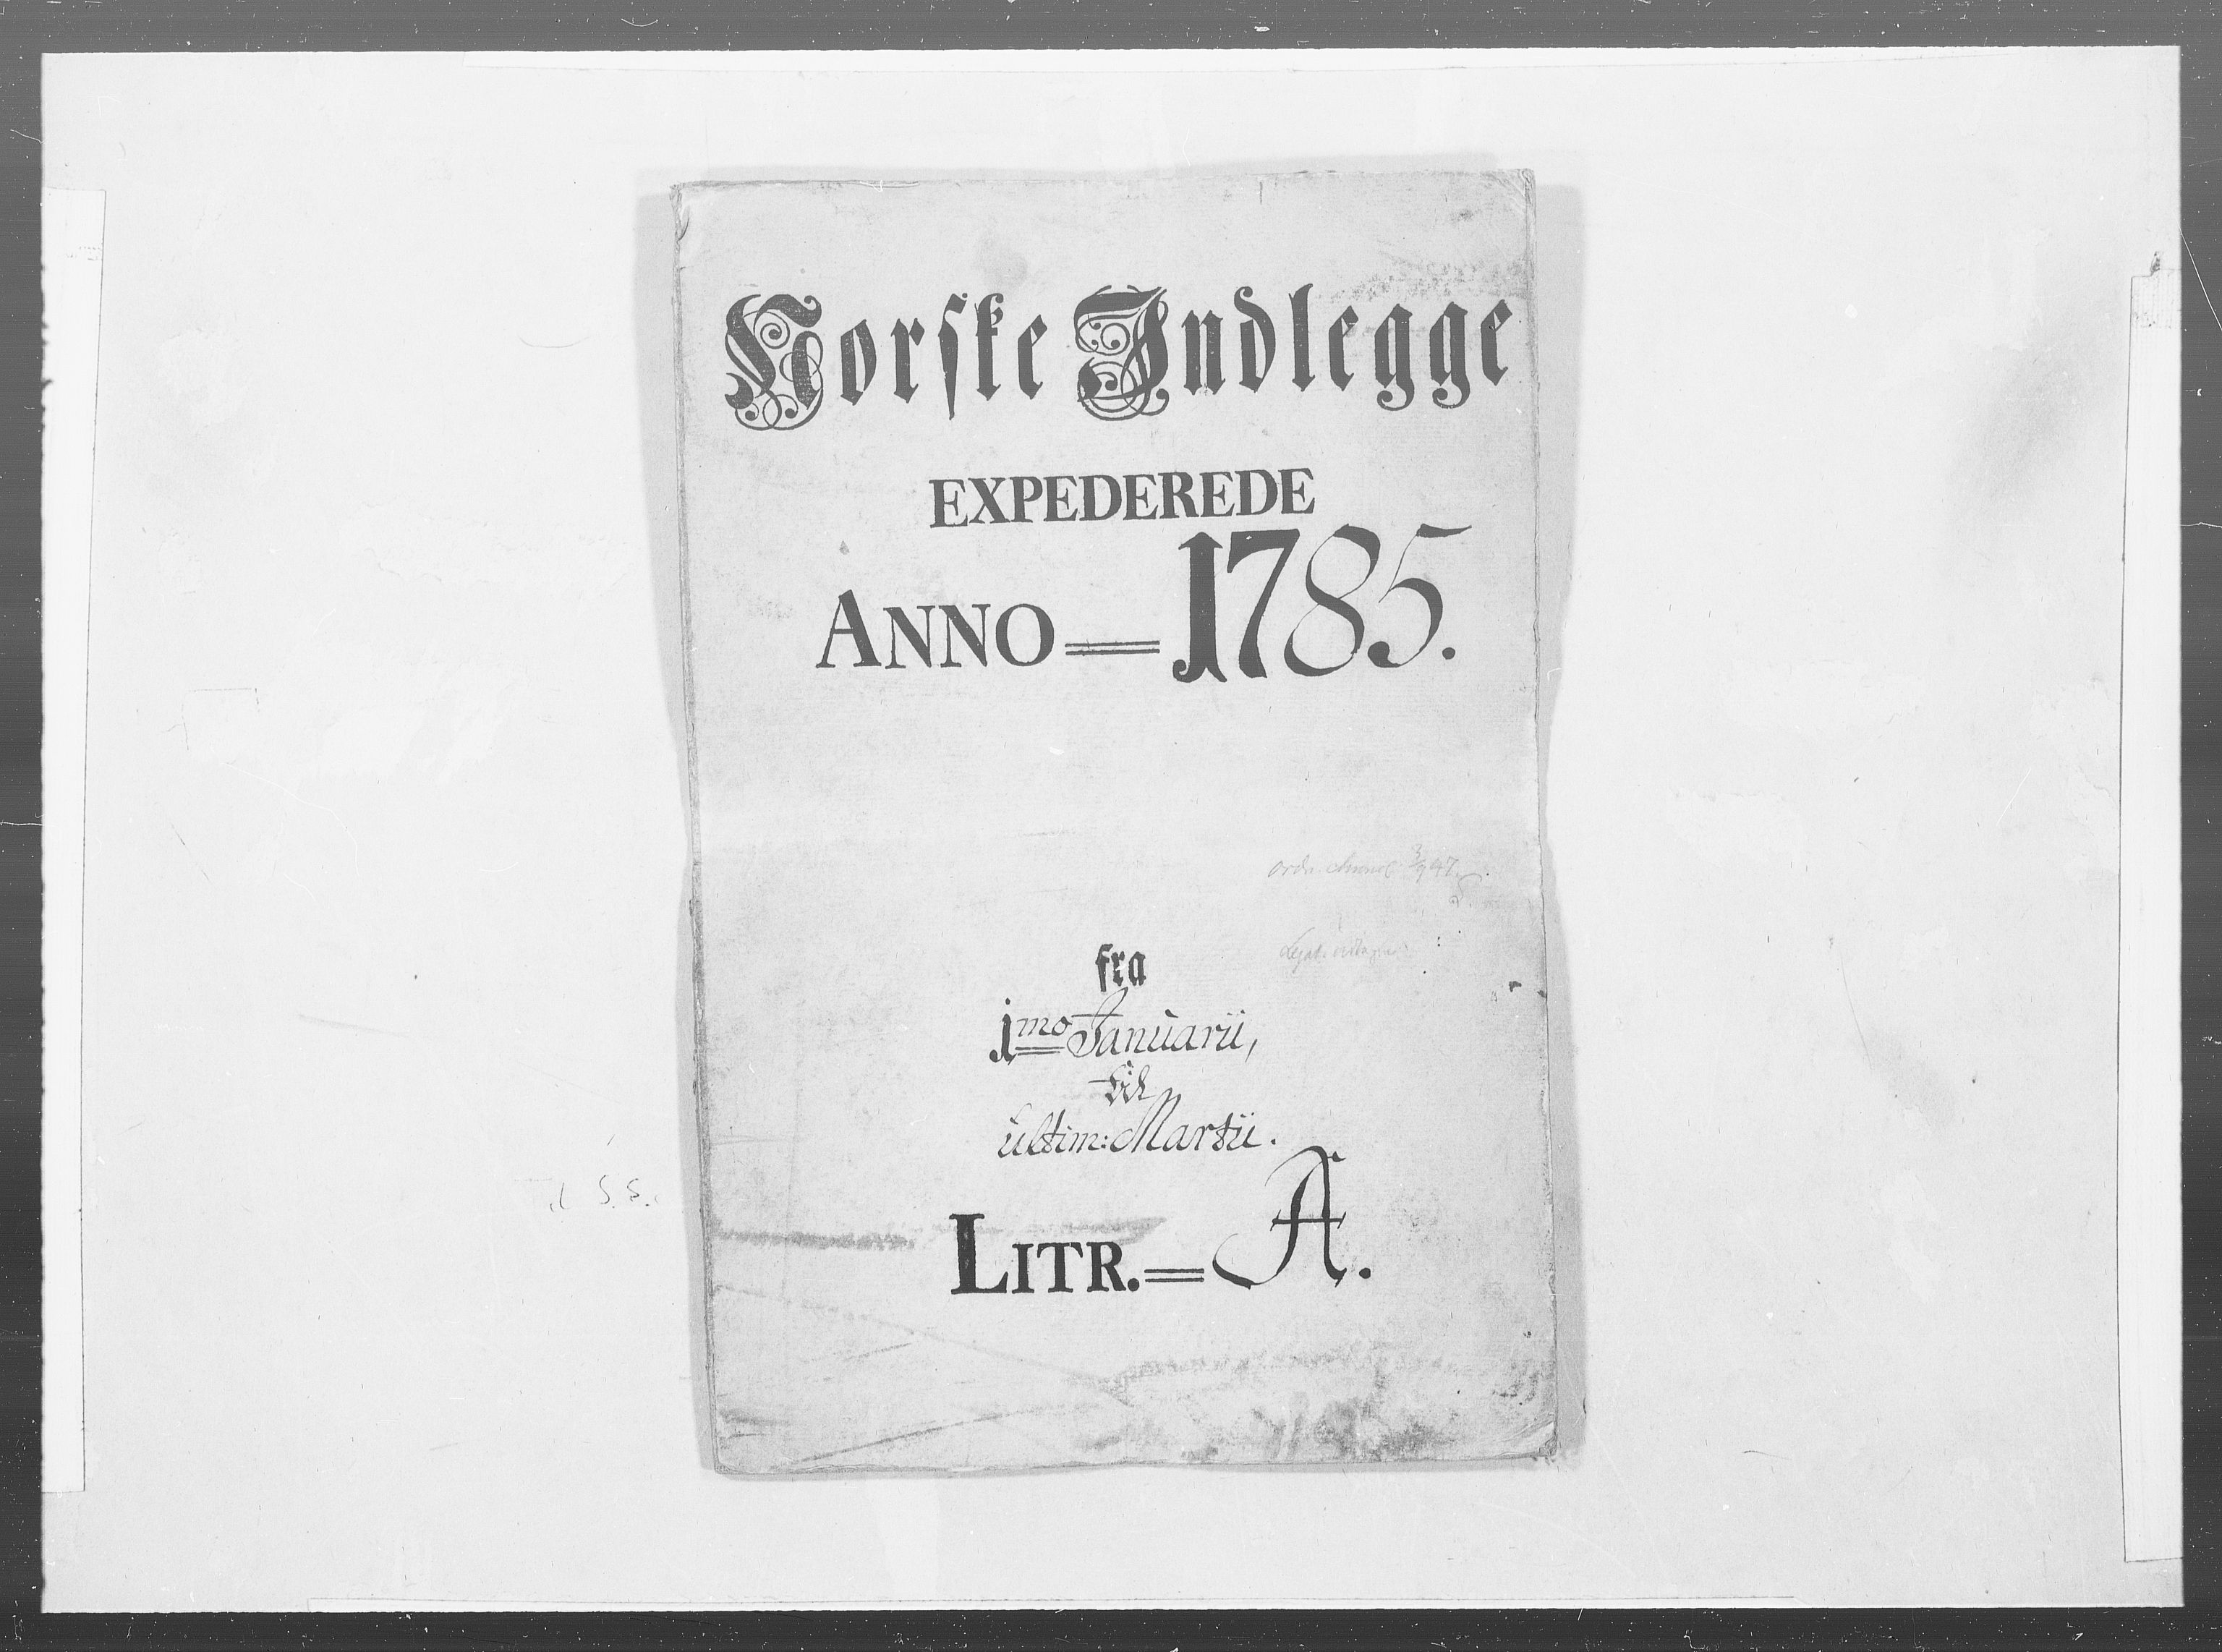 Norske Indlegge
EXPEDEREDE
ANNO = 1785.
fra
1mo Januarii,
til
ultim: Martii.
LITR. = A.